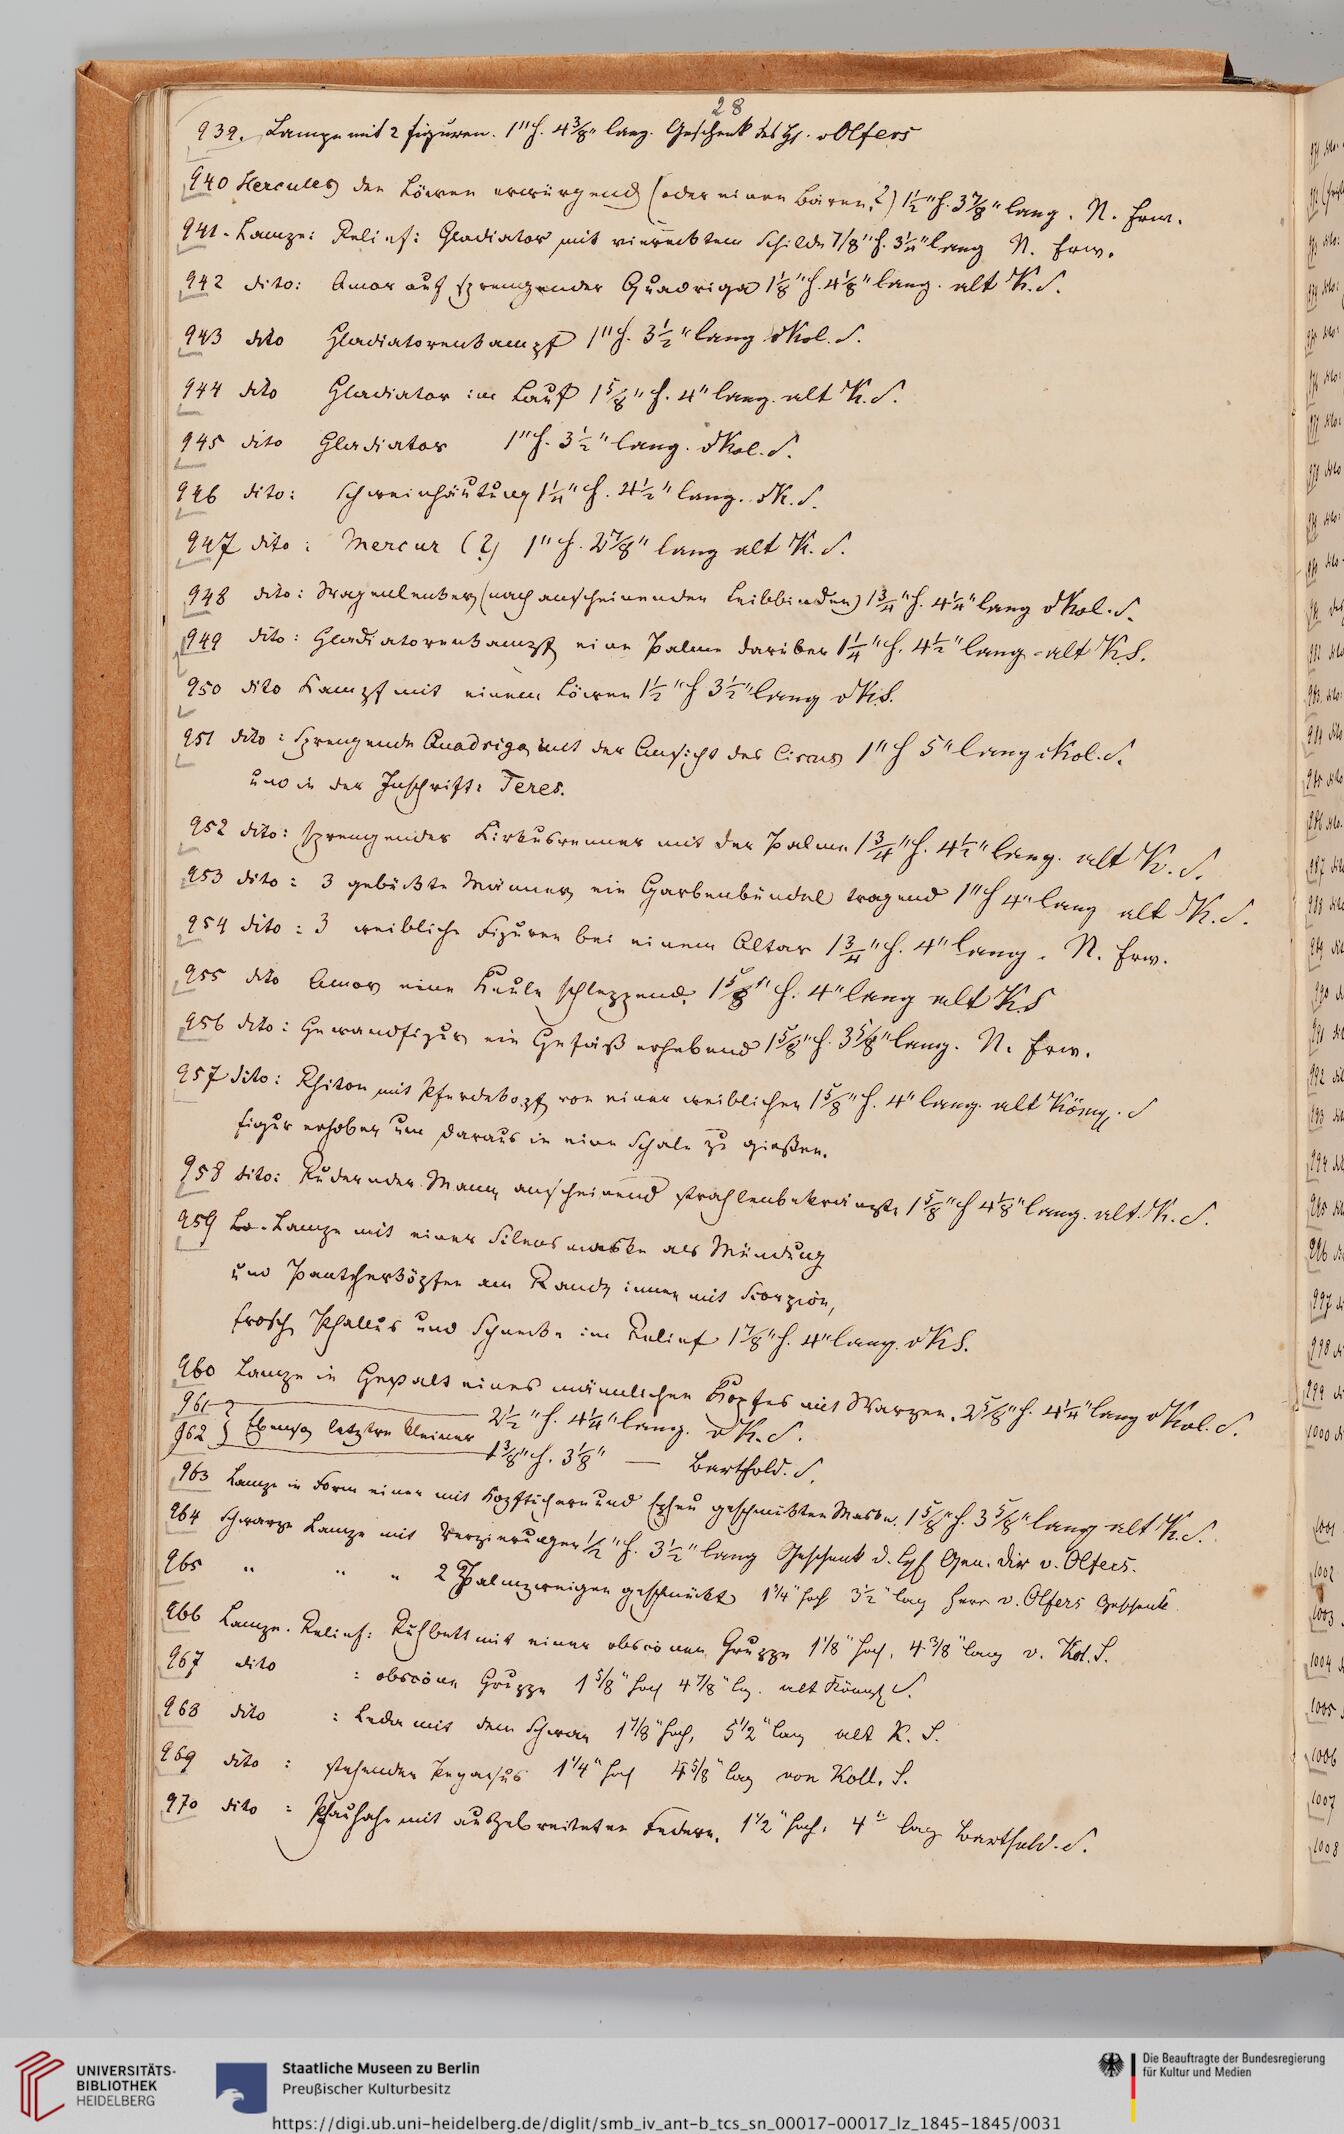 28
939. Lampe mit 2 Figuren. 1" h. 4 3/8" lang. Geschenk des H. v Olfers
940 Hercules den Löwen erwürgend (oder einen Bären?) 1 1/2" h. 3 7/8" lang. N. Erw.
941. Lampe: Relief: Gladiator mit vierecktem Schilde 7/8" h. 3 1/4" lang N. Erw.
942 dito: Amor auf sprengender Quadriga 1 1/8" h. 4 1/8" lang. alt K. S.
943 dito Gladiatorenkampf 1" h. 3 1/2" lang v Kol. S.
944 dito Gladiator im Lauf 1 5/8" h. 4" lang. alt K. S.
945 dito Gladiator 1" h. 3 1/2" lang. v Kol. S.
946 dito: Schweinhäutung 1 1/4" h. 4 1/2" lang. v K. S.
947 dito: Mercur (?) 1" h. 2 7/8" lang alt K. S.
948 dito: Wagenlenker (nach anscheinenden Leibbinden) 1 3/4" h. 4 1/4" lang v Kol. S.
949 dito: Gladiatorenkampf eine Palme darüber 1 1/4" h. 4 1/2" lang - alt K S.
950 dito Kampf mit einem Löwen 1 1/2" h 3 1/2" lang v K S.
951 dito: Sprengende Quadriga mit der Ansicht des Circus 1" h 5" lang v Kol. S.
und in der Inschrift: Teres.
952 dito: sprengender Cirkusrenner mit der Palme 1 3/4" h. 4 1/2" lang. alt K. S.
953 dito: 3 gebückte Männer ein Garbenbündel tragend 1" h 4" lang alt K. S.
954 dito: 3 weibliche Figuren bei einem Altar 1 3/4" h. 4" lang. N. Erw.
955 dito Amor eine Keule schleppend. 1 5/8" h. 4" lang alt K S
956 dito: Gewandfigur ein Gefäß erhebend 1 5/8" h. 3 5/8" lang. N. Erw.
957 dito: Rhiton mit Pferdekopf von einer weiblichen 1 5/8" h. 4" lang. alt Königl. S
Figur erhoben um daraus in eine Schale zu gießen.
958 dito: Rudernder Mann anscheinend strahlenbekränzt 1 5/8" h 4 1/8" lang. alt K. S.
959 La. Lampe mit einer Silensmaske als Mündung
und Pantherköpfen am Rande innen mit Scorpion,
Frosch Phallus und Schnecke im Relief 1 7/8" h. 4" lang. v K S.
960 Lampe in Gestalt eines männlichen Kopfes mit Warzen. 2 5/8" h. 4 1/4" lang v Kol. S.
961 2 1/2" h. 4 1/4" lang. v K. S.
962 } Ebenso letztre kleiner 1 3/8" h. 3 1/8" — Barthold. S.
963 Lampe in Form einer mit Kopftüchern und Epheu geschmückten Maske. 1 5/8" h. 3 5/8" lang alt K. S.
964 Schwarze Lampe mit Verzierungen 1/2" h. 3 1/2" lang Geschenk d. Gen. Dir v. Olfers.
965 " " " 2 Palmzweigen geschmückt 1 1/4" hoch 3 1/2" lang Herr v. Olfers Geschenk
966 Lampe. Relief: Ruhbett mit einer obscönen Gruppe 1 1/8" hoch, 4 3/8" lang v. Kol. S.
967 dito : obscöne Gruppe 1 5/8" hoch 4 7/8" lg. alt Königl S.
968 dito : Leda mit dem Schwan 1 7/8" hoch, 5 1/2" lang alt K. S.
969 dito : stehender Pegasus 1 1/4" hoch 4 5/8" lang von Koll. S.
970 dito : Pfauhahn mit ausgebreiteten Federn. 1 1/2" hoch, 4" lang Barthold. S.
UNIVERSITÄTS-
BIBLIOTHEK
HEIDELBERG
Staatliche Museen zu Berlin
Preußischer Kulturbesitz
Die Beauftragte der Bundesregierung
für Kultur und Medien
https://digi.ub.uni-heidelberg.de/diglit/smb_iv_ant-b_tcs_sn_00017-00017_lz_1845-1845/0031